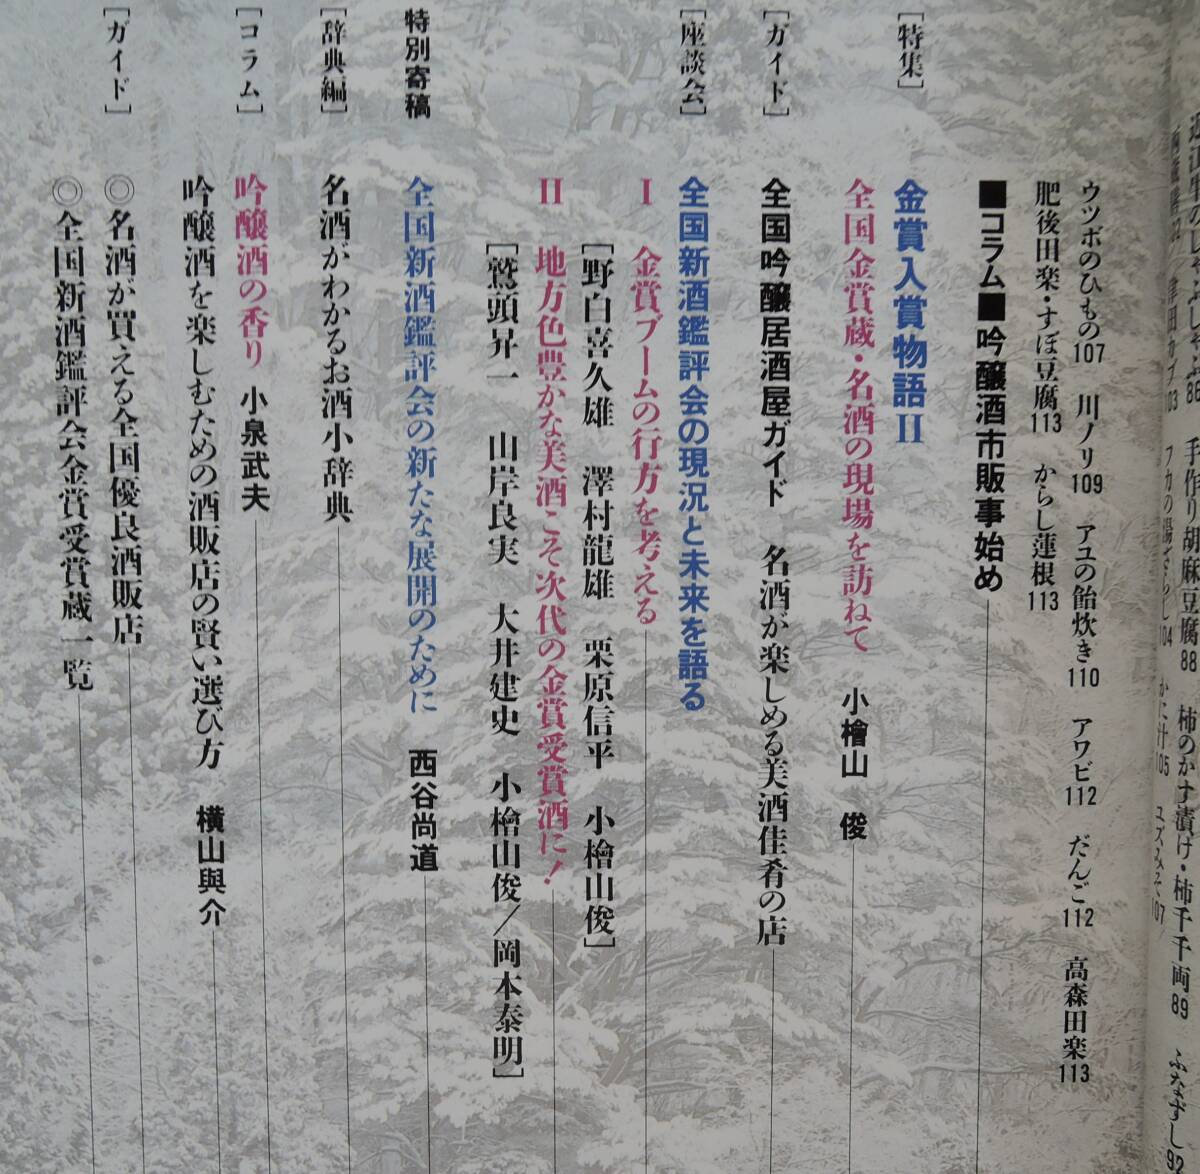 手作り胡麻豆腐88 柿のかす漬け・柿千千両89 ふなずし92
ウツボのひもの107 川ノリ109 アユの飴炊き110 アワビ112 だんご112 高森田楽113
肥後田楽・すぼ豆腐113 からし蓮根113
■コラム■吟醸酒市販事始め
[特集] 金賞入賞物語II
全国金賞蔵・名酒の現場を訪ねて 小檜山 俊
[ガイド] 全国吟醸居酒屋ガイド 名酒が楽しめる美酒佳肴の店
[座談会] 全国新酒鑑評会の現況と未来を語る
I 金賞ブームの行方を考える
[野白喜久雄 澤村龍雄 栗原信平 小檜山俊]
II 地方色豊かな美酒こそ次代の金賞受賞酒に!
[鷲頭昇一 山岸良実 大井建史 小檜山俊/岡本泰明]
特別寄稿 全国新酒鑑評会の新たな展開のために 西谷尚道
[辞典編] 名酒がわかるお酒小辞典
[コラム] 吟醸酒の香り 小泉武夫
吟醸酒を楽しむための酒販店の賢い選び方 横山與介
[ガイド] ◎名酒が買える全国優良酒販店
◎全国新酒鑑評会金賞受賞蔵一覧